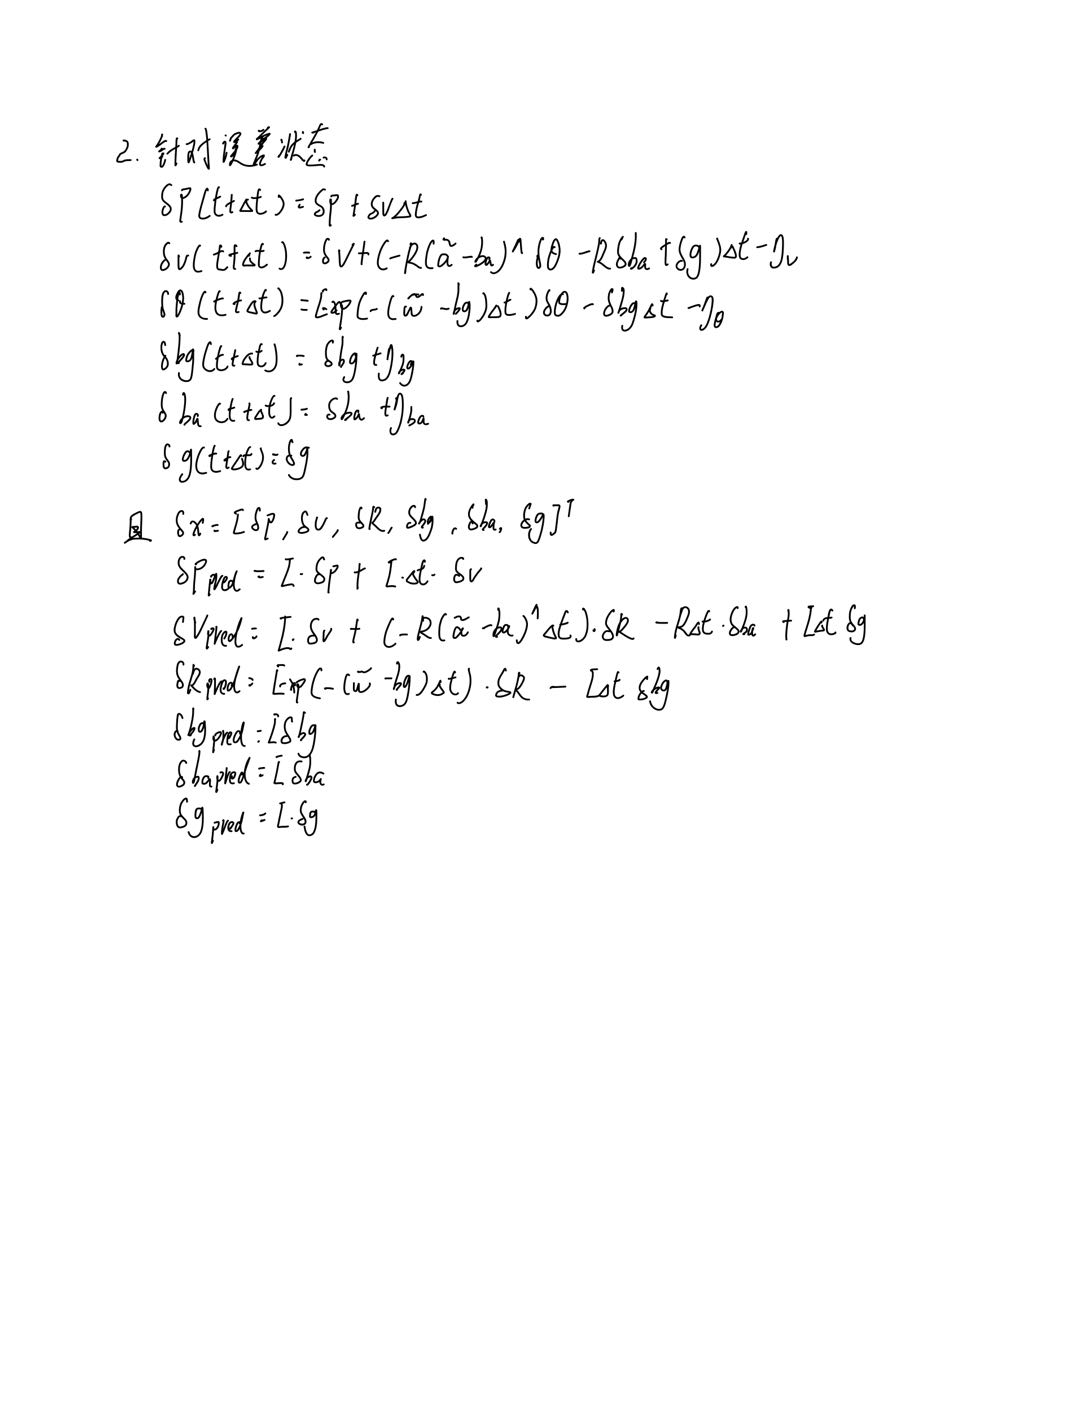 2. 针对误差状态
δp(t+Δt) = δp + δvΔt
δv(t+Δt) = δv + (-R(ã - ba)^δθ - Rδba + δg)Δt - ηv
δθ(t+Δt) = Exp(-(ω̃ - bg)Δt)δθ - δbgΔt - ηθ
δbg(t+Δt) = δbg + ηbg
δba(t+Δt) = δba + ηba
δg(t+Δt) = δg
且 δx = [δp, δv, δR, δbg, δba, δg]ᵀ
δp pred = I·δp + I·Δt·δv
δv pred = I·δv + (-R(ã - ba)^Δt)·δR - RΔt·δba + IΔt δg
δR pred = Exp(-(ω̃ - bg)Δt)·δR - IΔt δbg
δbg pred = Iδbg
δba pred = Iδba
δg pred = I·δg